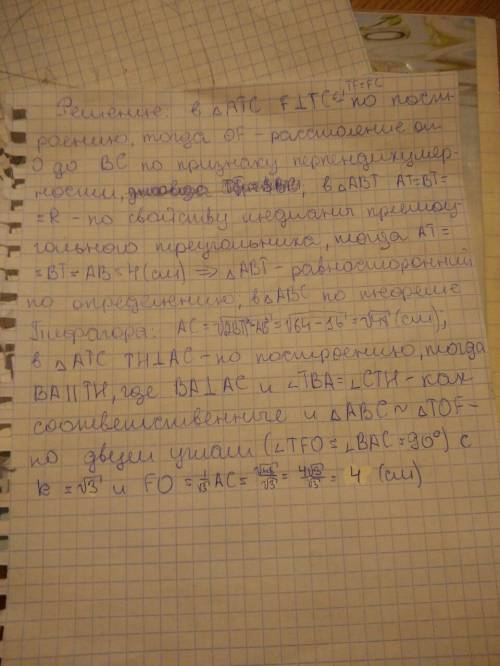 Решение: в △ATC F⊥TC ⇔ TF=FC по пост-
роению, тогда OF - расстояние от
O до BC по признаку перпендикуляр-
ности, в △ABT AT=BT=
=R - по свойству медианы прямоу-
гольного треугольника, тогда AT=
=BT=AB=4(см) ⇒ △ABT - равносторонний
по определению, в △ABC по теореме
Пифагора: AC=√2BT²-AB²=√64-16=√48(см),
в △ATC TH⊥AC - по построению, тогда
BA||TH, где BA⊥AC и ∠TBA=∠CTH - как
соответственные и △ABC~△TOF-
по двум углам (∠TFO=∠BAC=90°) с
k=√3 и FO=1/√3 AC=√48/√3=4√3/√3=4 (см)